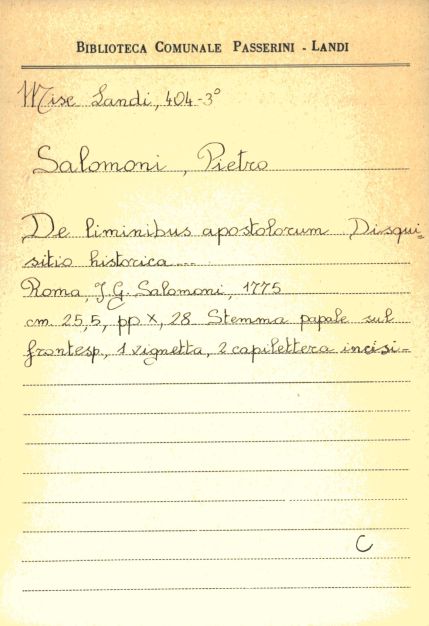 BIBLIOTECA COMUNALE PASSERINI - LANDI
Misc Landi, 404-3°
Salomoni, Pietro
De liminibus apostolorum Disqui=
sitio historica...
Roma, J.G. Salomoni, 1775
cm. 25,5, pp X, 28 Stemma papale sul
frontesp., 1 vignetta, 2 capilettera incisi-
C